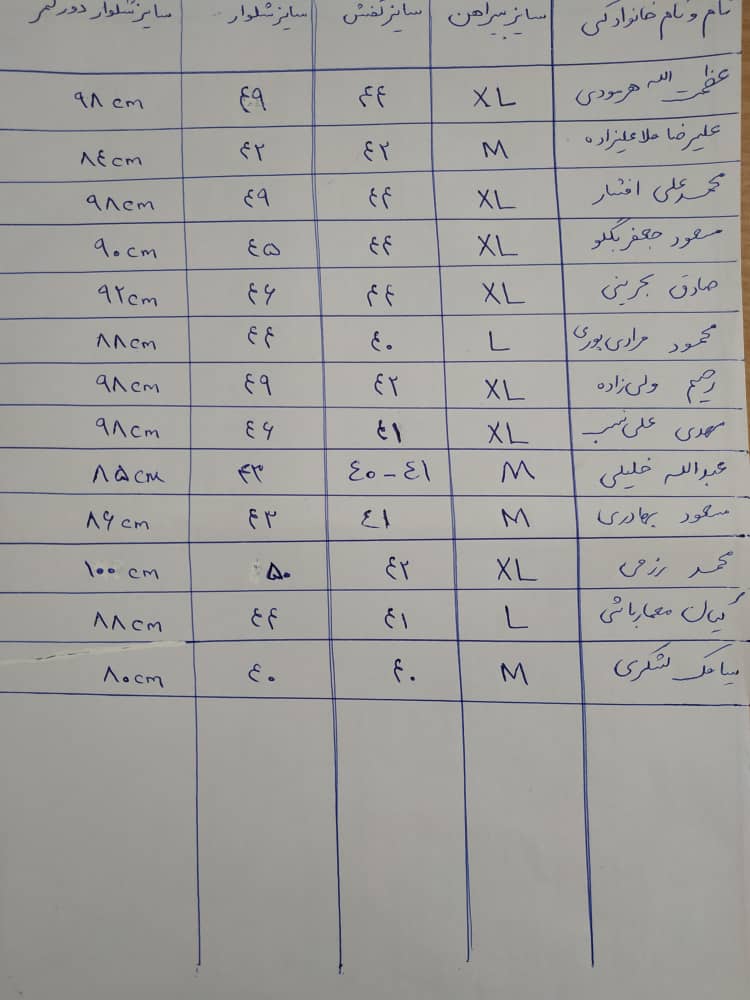 نام و نام خانوادگی سایز پیراهن سایز کفش سایز شلوار سایز شلوار دور کمر
عظمت الله هرسودی XL ۴۴ ۴۹ ۹۸ cm
علیرضا ملاعلیزاده M ۴۲ ۴۲ ۸۴ cm
محمدعلی افشار XL ۴۴ ۴۹ ۹۸ cm
مسعود جعفربگلو XL ۴۴ ۴۵ ۹۰ cm
صادق بحرینی XL ۴۴ ۴۶ ۹۲ cm
محمود مرادی پوری L ۴۰ ۴۴ ۸۸ cm
رحیم ولی زاده XL ۴۲ ۴۹ ۹۸ cm
مهدی علی نسب XL ۴۱ ۴۶ ۹۸ cm
عبدالله خلیلی M ۴۰-۴۱ ۴۳ ۸۵ cm
مسعود بهادری M ۴۱ ۴۳ ۸۶ cm
محمد رزمی XL ۴۲ ۵۰ ۱۰۰ cm
کیان معمارباشی L ۴۱ ۴۴ ۸۸ cm
سیامک لشکری M ۴۰ ۴۰ ۸۰ cm